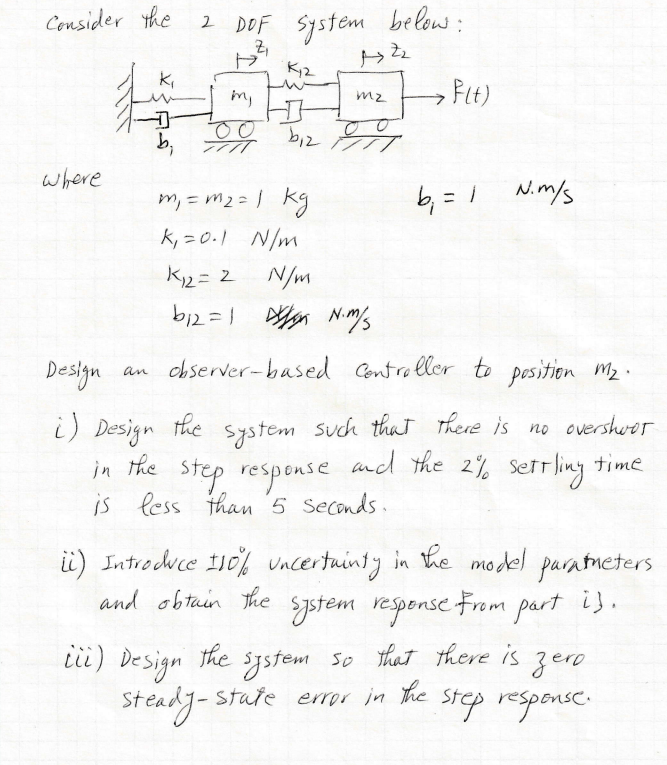 Consider the 2 DOF system below:
z₁ z₂
k₁ k₁₂
m₁ m₂ F(t)
b₁ b₁₂
where
m₁ = m₂ = 1 kg b₁ = 1 N.m/s
k₁ = 0.1 N/m
k₁₂ = 2 N/m
b₁₂ = 1 N.m/s
Design an observer-based controller to position m₂.
i) Design the system such that there is no overshoot
in the step response and the 2% settling time
is less than 5 seconds.
ii) Introduce ±10% uncertainty in the model parameters
and obtain the system response from part i).
iii) Design the system so that there is zero
steady-state error in the step response.